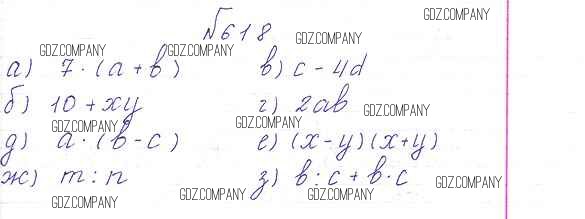 №618
а) 7·(a+b) в) c-4d
б) 10+xy г) 2ab
д) a·(b-c) е) (x-y)(x+y)
ж) m:n з) b:c+b·c
GDZ.COMPANY
GDZ.COMPANY
GDZ.COMPANY
GDZ.COMPANY
GDZ.COMPANY
GDZ.COMPANY
GDZ.COMPANY
GDZ.COMPANY
GDZ.COMPANY
GDZ.COMPANY
GDZ.COMPANY